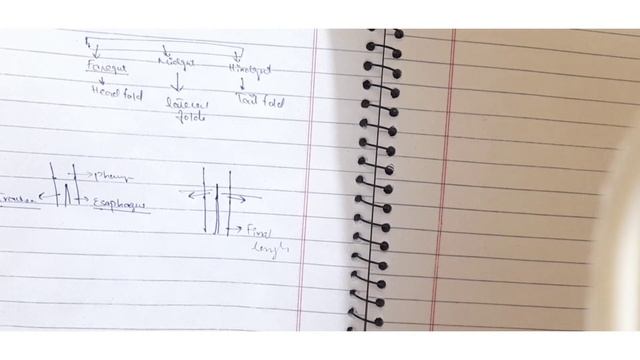 Foregut Midgut Hindgut
Head fold lateral folds Tail fold
Esophagus
Final length